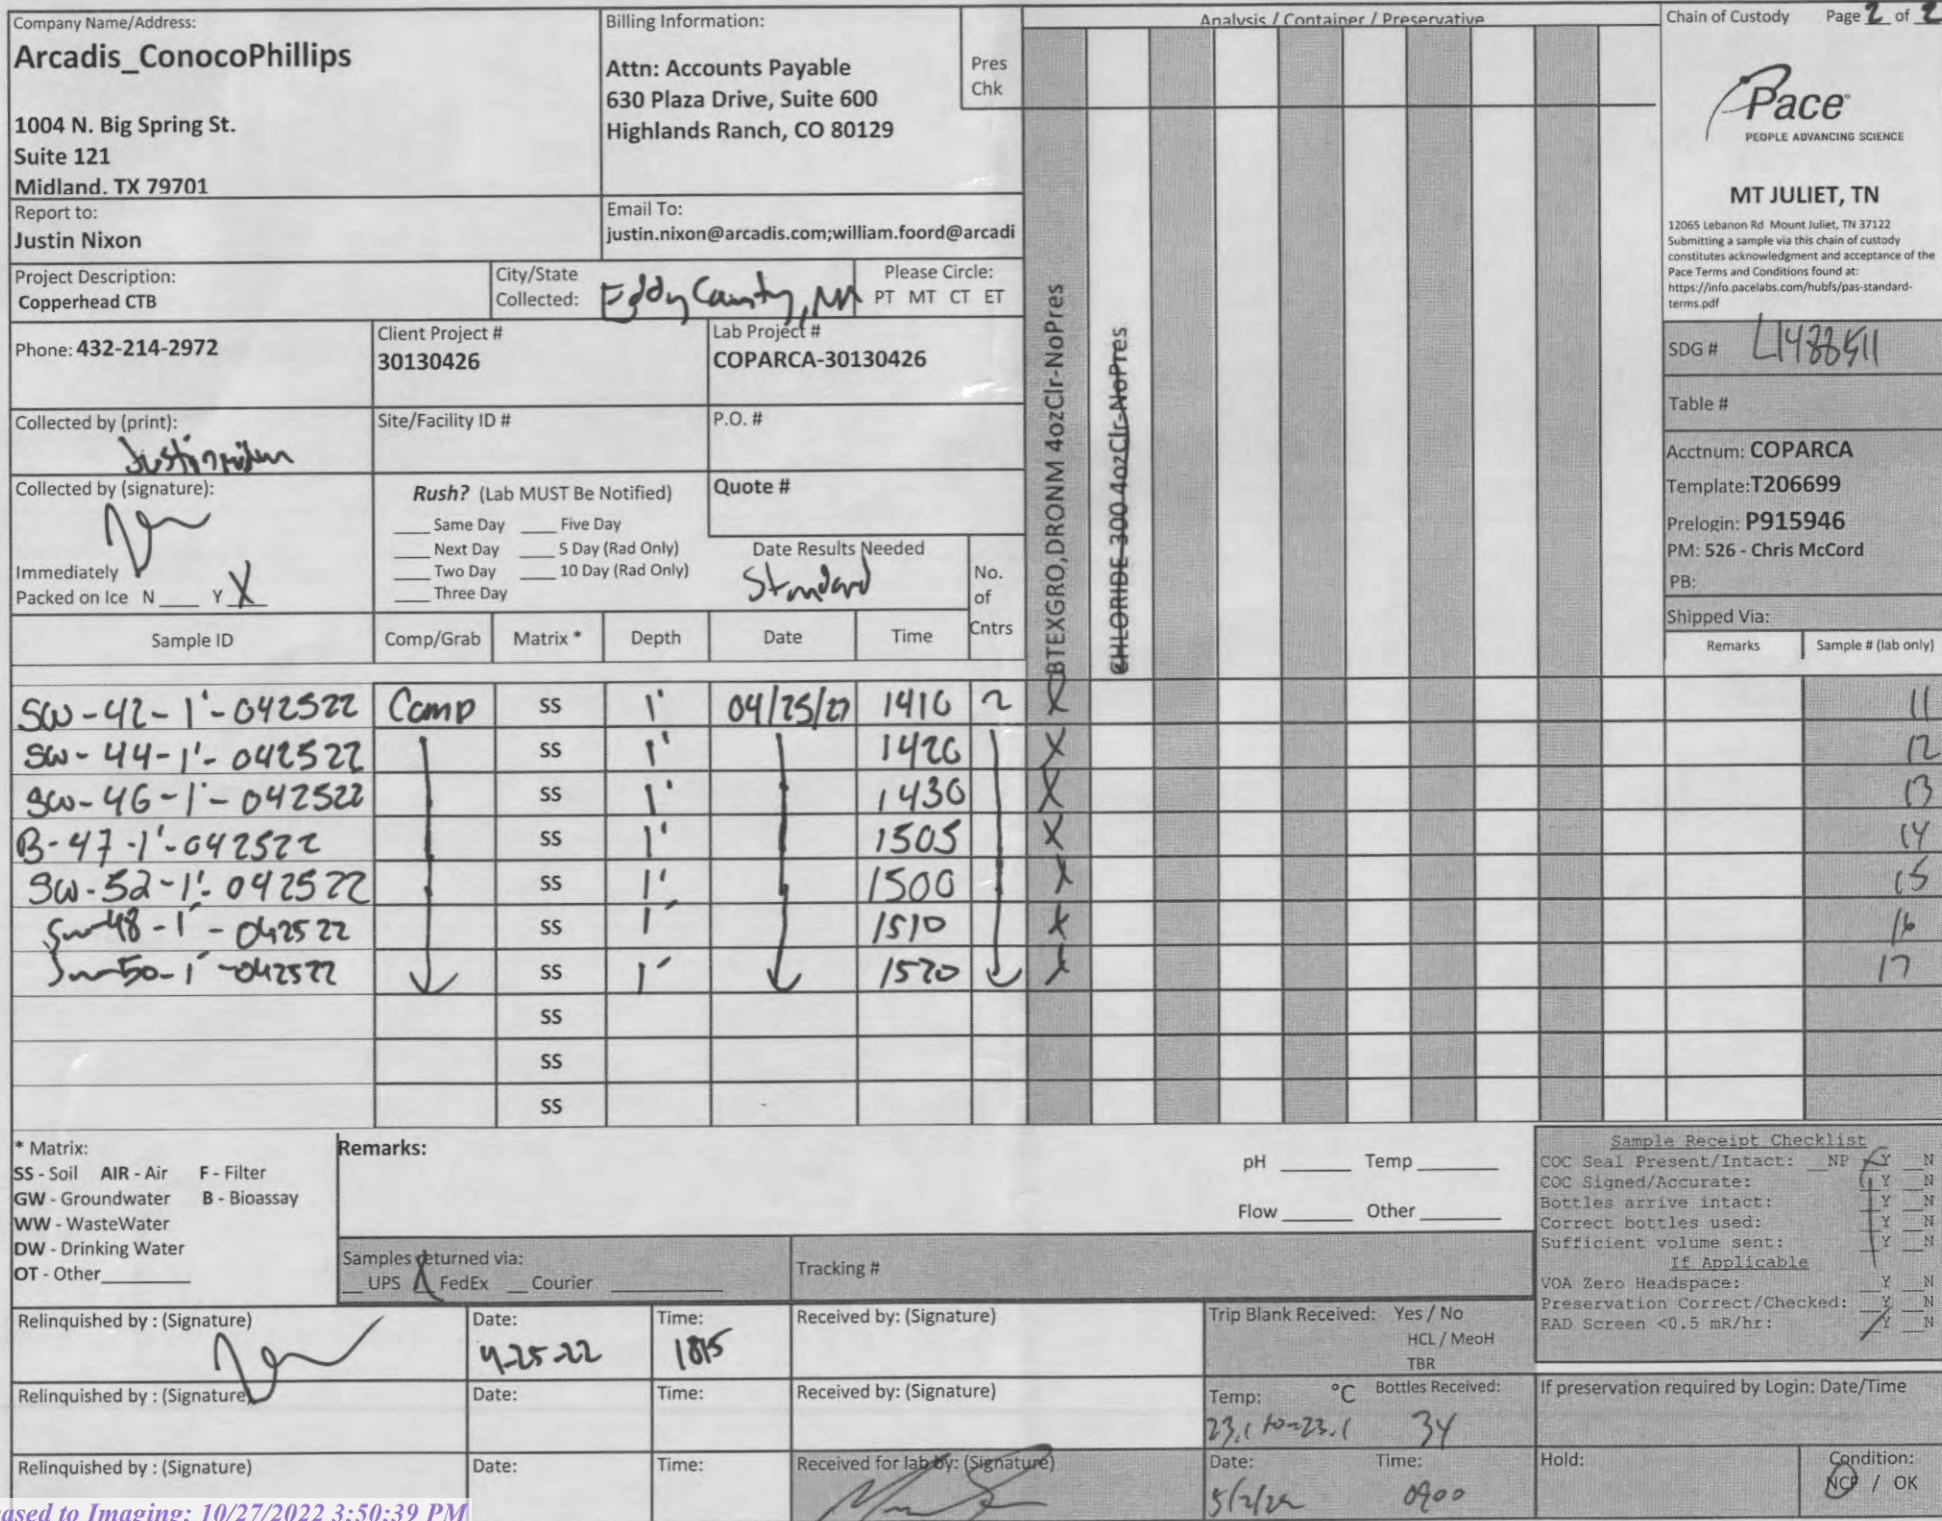 Company Name/Address:
Arcadis_ConocoPhillips
1004 N. Big Spring St.
Suite 121
Midland. TX 79701
Billing Information:
Attn: Accounts Payable
630 Plaza Drive, Suite 600
Highlands Ranch, CO 80129
Pres
Chk
Analysis / Container / Preservative
Chain of Custody Page 2 of 2
Pace
PEOPLE ADVANCING SCIENCE
MT JULIET, TN
12065 Lebanon Rd Mount Juliet, TN 37122
Submitting a sample via this chain of custody
constitutes acknowledgment and acceptance of the
Pace Terms and Conditions found at:
https://info.pacelabs.com/hubfs/pas-standard-
terms.pdf
Report to:
Justin Nixon
Email To:
justin.nixon@arcadis.com;william.foord@arcadi
Project Description:
Copperhead CTB
City/State
Collected: Eddy County, NM
Please Circle:
PT MT CT ET
Phone: 432-214-2972
Client Project #
30130426
Lab Project #
COPARCA-30130426
SDG # L1488511
Table #
Collected by (print):
Justin Nixon
Site/Facility ID #
P.O. #
Acctnum: COPARCA
Template:T206699
Prelogin: P915946
PM: 526 - Chris McCord
PB:
Shipped Via:
Collected by (signature):
Immediately
Packed on Ice N ____ Y X
Rush? (Lab MUST Be Notified)
____ Same Day ____ Five Day
____ Next Day ____ 5 Day (Rad Only)
____ Two Day ____ 10 Day (Rad Only)
____ Three Day
Quote #
Date Results Needed
Standard
No.
of
Cntrs
BTEXGRO,DRONM 4ozClr-NoPres
CHLORIDE-300 4ozClr-NoPres
Sample ID Comp/Grab Matrix * Depth Date Time Remarks Sample # (lab only)
SW-42-1'-042522 Comp SS 1' 04/25/22 1410 2 X 11
SW-44-1'-042522 SS 1' 1420 X 12
SW-46-1'-042522 SS 1' 1430 X 13
B-47-1'-042522 SS 1' 1505 X 14
SW-52-1'-042522 SS 1' 1500 X 15
SW-48-1'-042522 SS 1' 1510 X 16
SW-50-1'-042522 SS 1' 1520 X 17
SS
SS
SS
* Matrix:
SS - Soil AIR - Air F - Filter
GW - Groundwater B - Bioassay
WW - WasteWater
DW - Drinking Water
OT - Other________
Remarks:
pH ______ Temp ______
Flow ______ Other ______
Samples returned via:
__ UPS X FedEx __ Courier ________
Tracking #
Sample Receipt Checklist
COC Seal Present/Intact: __NP __Y __N
COC Signed/Accurate: __Y __N
Bottles arrive intact: __Y __N
Correct bottles used: __Y __N
Sufficient volume sent: __Y __N
If Applicable
VOA Zero Headspace: __Y __N
Preservation Correct/Checked: __Y __N
RAD Screen <0.5 mR/hr: __Y __N
Relinquished by : (Signature)
Date:
4-25-22
Time:
1815
Received by: (Signature)
Trip Blank Received: Yes / No
HCL / MeoH
TBR
Relinquished by : (Signature)
Date:
Time:
Received by: (Signature)
Temp: °C Bottles Received:
23.1+0=23.1 34
If preservation required by Login: Date/Time
Relinquished by : (Signature)
Date:
Time:
Received for lab by: (Signature)
Date:
5/2/22
Time:
0900
Hold:
Condition:
NCF / OK
ased to Imaging: 10/27/2022 3:50:39 PM